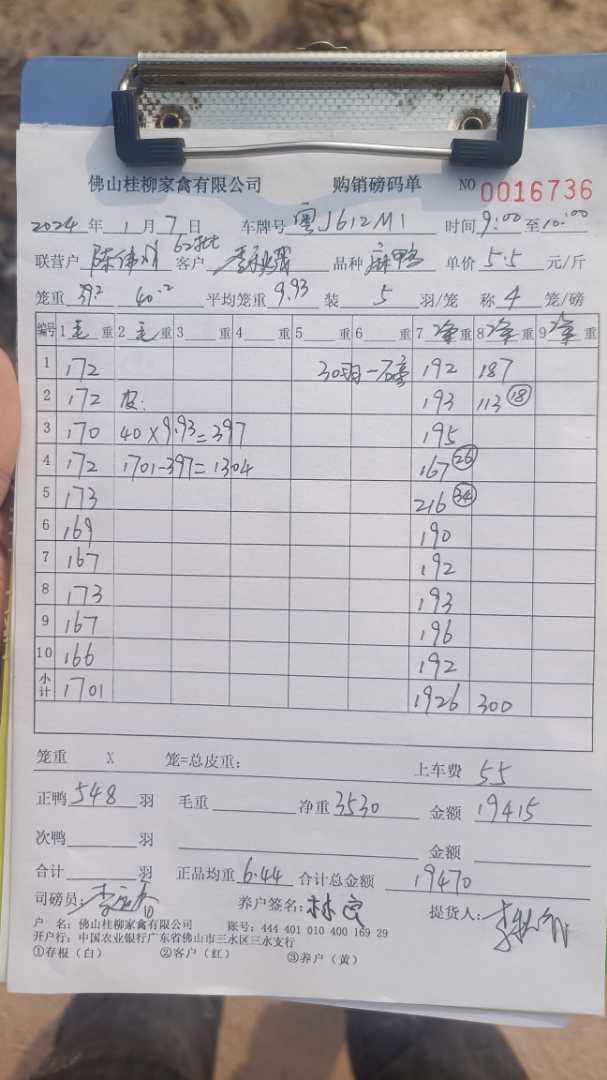 佛山桂柳家禽有限公司 购销磅码单 NO 0016736
2024 年 1 月 7 日 车牌号 粤J612M1 时间 9:00 至 10:00
联营户 陈伟 62批 客户 品种 麻鸭 单价 5.5 元/斤
笼重 39.2 40.2 平均笼重 9.93 装 5 羽/笼 称 4 笼/磅
编号 1 毛 重 2 毛 重 3 重 4 重 5 重 6 重 7 净 重 8 净 重 9 净 重
1 172 30羽一磅 192 187
2 172 皮: 193 113 18
3 170 40×9.93=397 195
4 172 1701-397=1304 167 26
5 173 216 34
6 169 190
7 167 192
8 173 193
9 167 196
10 166 192
小计 1701 1926 300
笼重 X 笼=总皮重: 上车费 55
正鸭 548 羽 毛重 净重 3530 金额 19415
次鸭 羽 金额
合计 羽 正品均重 6.44 合计总金额 19470
司磅员: 养户签名: 林良 提货人:
户 名: 佛山桂柳家禽有限公司 账号: 444 401 010 400 169 29
开户行: 中国农业银行广东省佛山市三水区三水支行
①存根(白) ②客户(红) ③养户(黄)